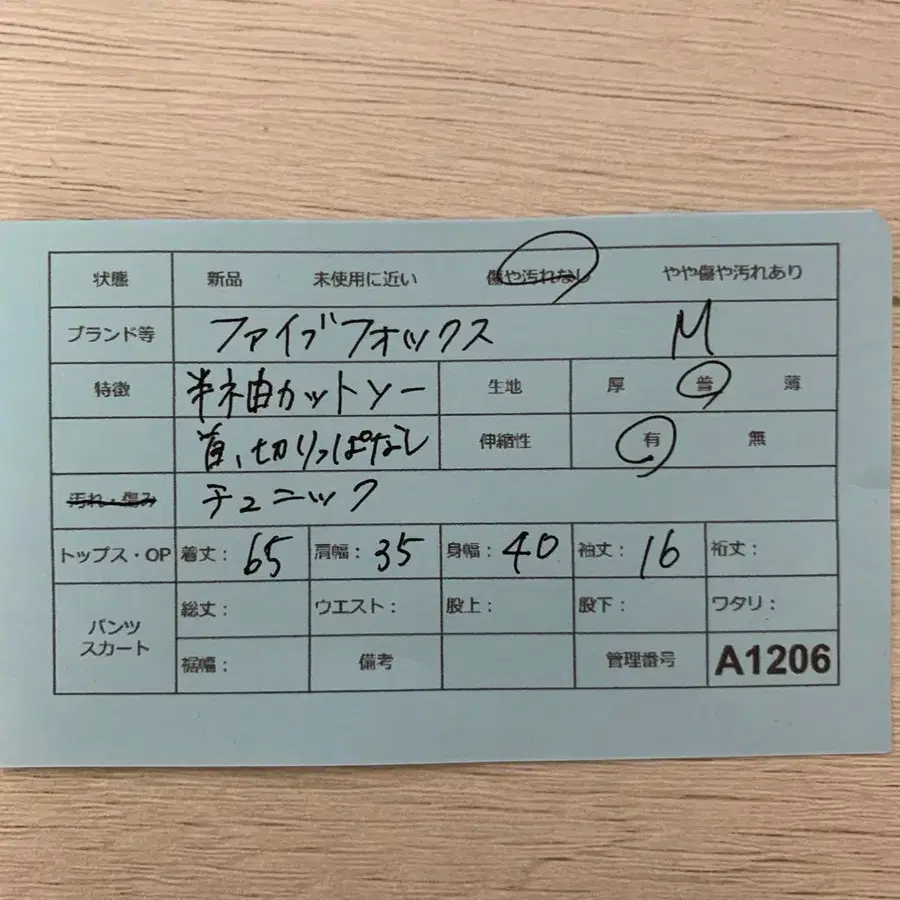 状態 新品 未使用に近い 傷や汚れなし やや傷や汚れあり
ブランド等 ファイブフォックス M
特徴 半袖カットソー 生地 厚 普 薄
首、切りっぱなし 伸縮性 有 無
汚れ・傷み チュニック
トップス・OP 着丈: 65 肩幅: 35 身幅: 40 袖丈: 16 裄丈:
パンツ スカート 総丈: ウエスト: 股上: 股下: ワタリ:
裾幅: 備考 管理番号 A1206